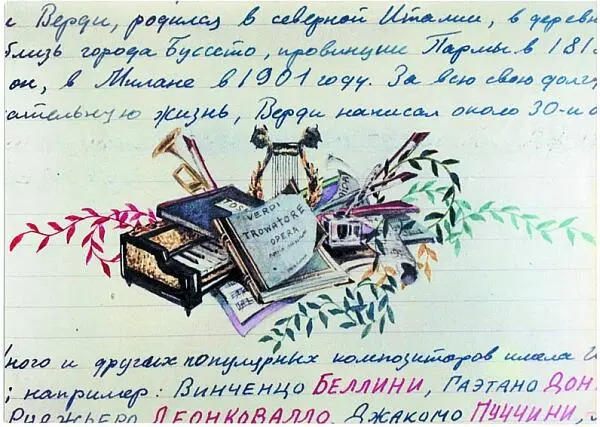 Верди, родился в северной Италии, в
близь города Буссето, провинции Пармы в 181
он, в Милане в 1901 году. За всю свою
ательную жизнь, Верди написал около 30-и
VERDI
TROWATORE
OPERA
ного и других популярных композиторов имела
например: ВИНЧЕНЦО БЕЛЛИНИ, ГАЭТАНО ДОН
РУДЖЬЕРО ЛЕОНКОВАЛЛО, ДЖАКОМО ПУЧЧИНИ,